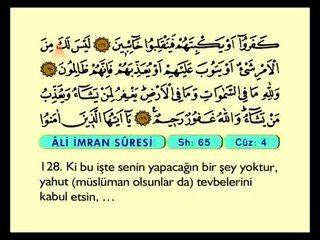 كَفَرُٓوا اَوْ يَكْبِتَهُمْ فَيَنْقَلِبُوا خَٓائِب۪ينَ ﴿١٢٧﴾ لَيْسَ لَكَ مِنَ
الْاَمْرِ شَيْءٌ اَوْ يَتُوبَ عَلَيْهِمْ اَوْ يُعَذِّبَهُمْ فَاِنَّهُمْ ظَالِمُونَ ﴿١٢٨﴾
وَلِلّٰهِ مَا فِي السَّمٰوَاتِ وَمَا فِي الْاَرْضِ يَغْفِرُ لِمَنْ يَشَٓاءُ وَيُعَذِّبُ
مَنْ يَشَٓاءُ وَاللّٰهُ غَفُورٌ رَح۪يمٌ ﴿١٢٩﴾ يَٓا اَيُّهَا الَّذ۪ينَ اٰمَنُوا
ÂLİ İMRAN SÛRESİ Sh: 65 Cüz: 4
128. Ki bu işte senin yapacağın bir şey yoktur,
yahut (müslüman olsunlar da) tevbelerini
kabul etsin, …